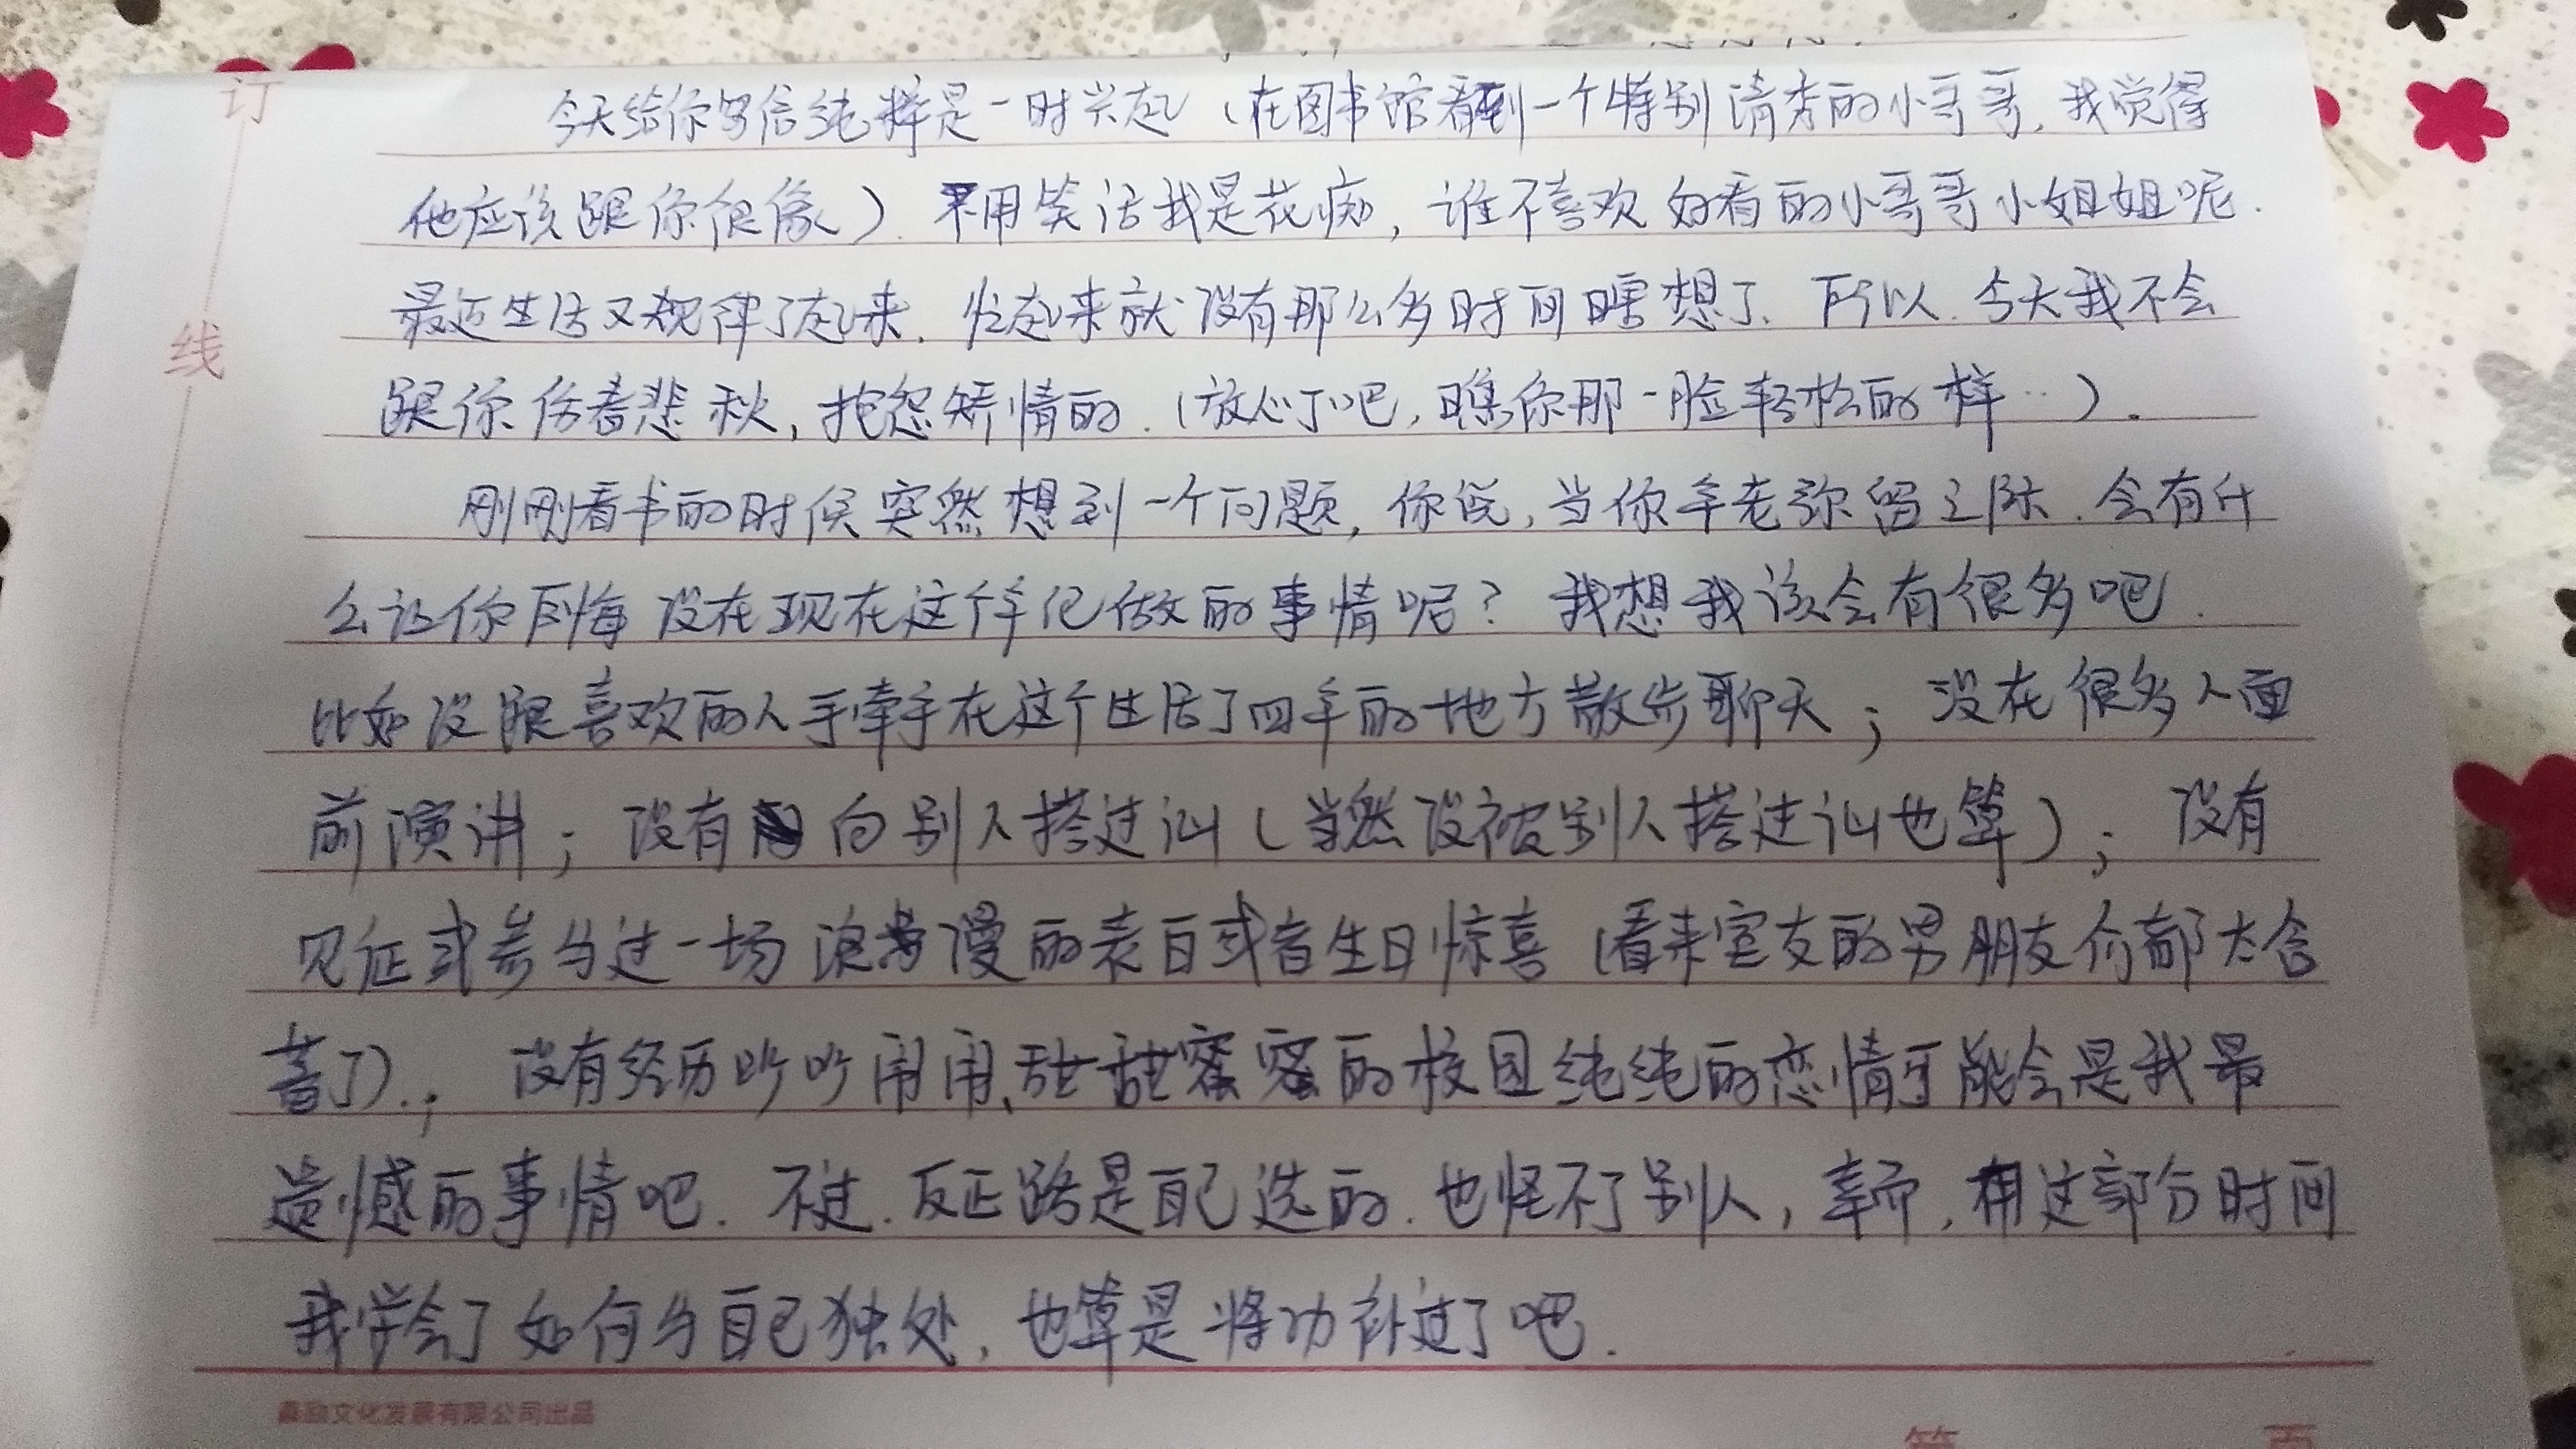 订
线
今天给你写信纯粹是一时兴起（在图书馆看到一个特别清秀的小哥哥，我觉得
他应该跟你很像）．不用笑话我是花痴，谁不喜欢好看的小哥哥小姐姐呢．
最近生活又规律了起来．忙起来就没有那么多时间瞎想了．所以．今天我不会
跟你伤春悲秋，抱怨矫情的．（放心了吧，瞧你那一脸轻松的样…）．
刚刚看书的时候突然想到一个问题，你说，当你年老弥留之际．会有什
么让你后悔没在现在这个年纪做的事情呢？我想我该会有很多吧．
比如没跟喜欢的人手牵手在这个生活了四年的地方散步聊天；没在很多人面
前演讲；没有向别人搭过讪（当然没被别人搭过讪也算）；没有
见证或参与过一场浪漫的表白或者生日惊喜（看来室友的男朋友们都太含
蓄了）．；没有经历吵吵闹闹、甜甜蜜蜜的校园纯纯的恋情可能会是我最
遗憾的事情吧．不过．反正路是自己选的．也怪不了别人，幸而，用这部分时间
我学会了如何与自己独处，也算是将功补过了吧．
文化发展有限公司出品
第 页